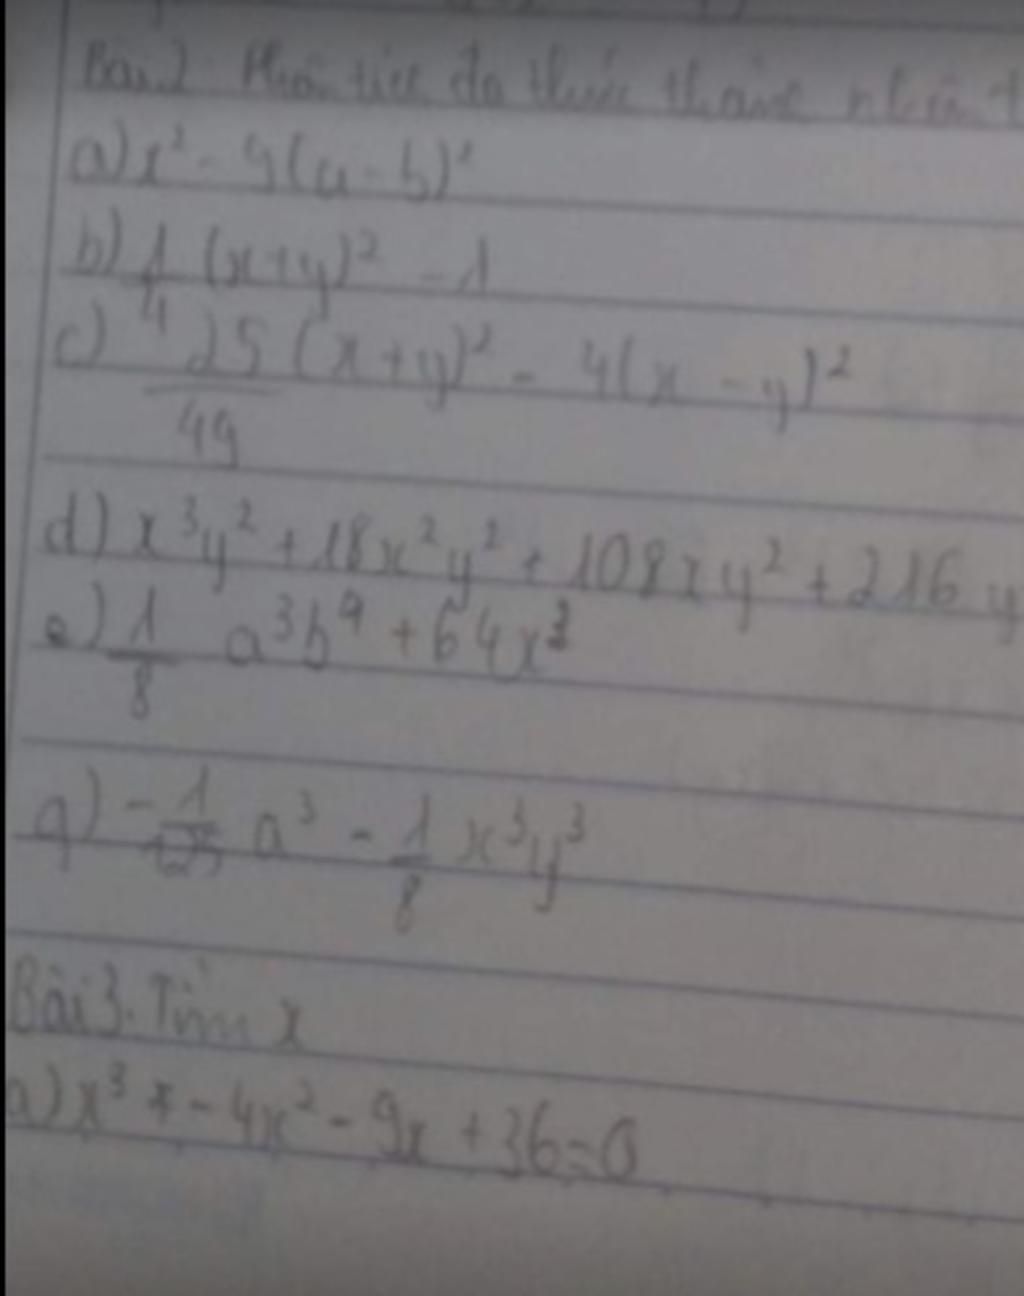 Bài 2 Phân tích đa thức thành nhân t
a) x² - 9(a - b)²
b) 1/4 (x+y)² - 1
c) 25/49 (x+y)² - 4(x - y)²
d) x³y² + 18x²y² + 108xy² + 216 y
e) 1/8 a³b⁹ + 64x³
g) - 1/125 a³ - 1/8 x³y³
Bài 3. Tìm x
a) x³ - 4x² - 9x + 36 = 0